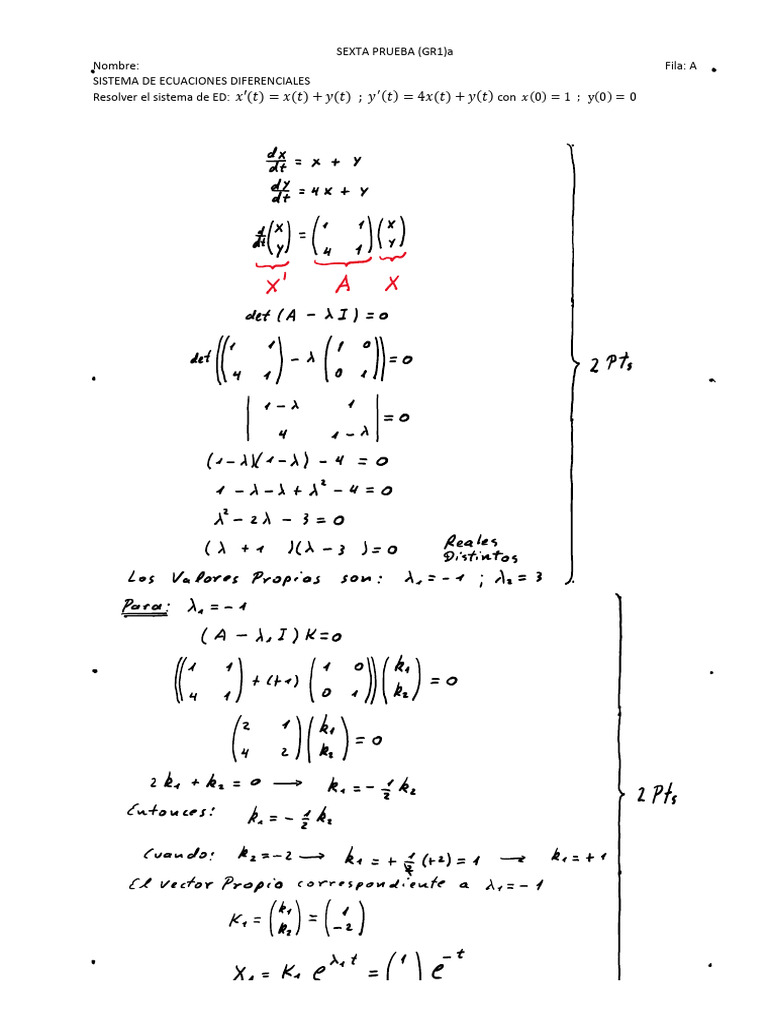 SEXTA PRUEBA (GR1)a
Nombre: Fila: A
SISTEMA DE ECUACIONES DIFERENCIALES
Resolver el sistema de ED: x′(t) = x(t) + y(t) ; y′(t) = 4x(t) + y(t) con x(0) = 1 ; y(0) = 0
dx/dt = x + y
dy/dt = 4x + y
d/dt (x y) = (1 1 4 1)(x y)
X' A X
det (A − λI) = 0
det ((1 1 4 1) − λ (1 0 0 1)) = 0
2 Pts
|1−λ 1 4 1−λ| = 0
(1−λ)(1−λ) − 4 = 0
1 − λ − λ + λ² − 4 = 0
λ² − 2λ − 3 = 0
(λ + 1)(λ − 3) = 0 Reales Distintos
Los Valores Propios son: λ₁ = −1 ; λ₂ = 3
Para: λ₁ = −1
(A − λ₁I) K = 0
((1 1 4 1) + (+1) (1 0 0 1)) (k₁ k₂) = 0
(2 1 4 2)(k₁ k₂) = 0
2k₁ + k₂ = 0 → k₁ = −1/2 k₂
2 Pts
Entonces: k₁ = −1/2 k₂
Cuando: k₂ = −2 → k₁ = + 1/2 (+2) = 1 → k₁ = +1
El vector Propio correspondiente a λ₁ = −1
K₁ = (k₁ k₂) = (1 −2)
X₁ = K₁ e^λ₁t = (1 ) e^−t